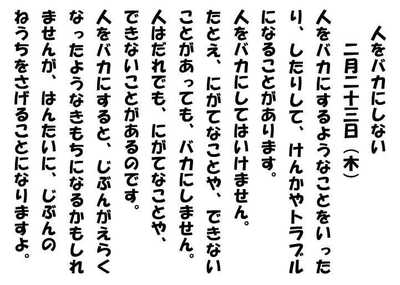 人をバカにしない
二月二十三日（木）
人をバカにするようなことをいった
り、したりして、けんかやトラブル
になることがあります。
人をバカにしてはいけません。
たとえ、にがてなことや、できない
ことがあっても、バカにしません。
人はだれでも、にがてなことや、
できないことがあるのです。
人をバカにすると、じぶんがえらく
なったようなきもちになるかもしれ
ませんが、はんたいに、じぶんの
ねうちをさげることになりますよ。